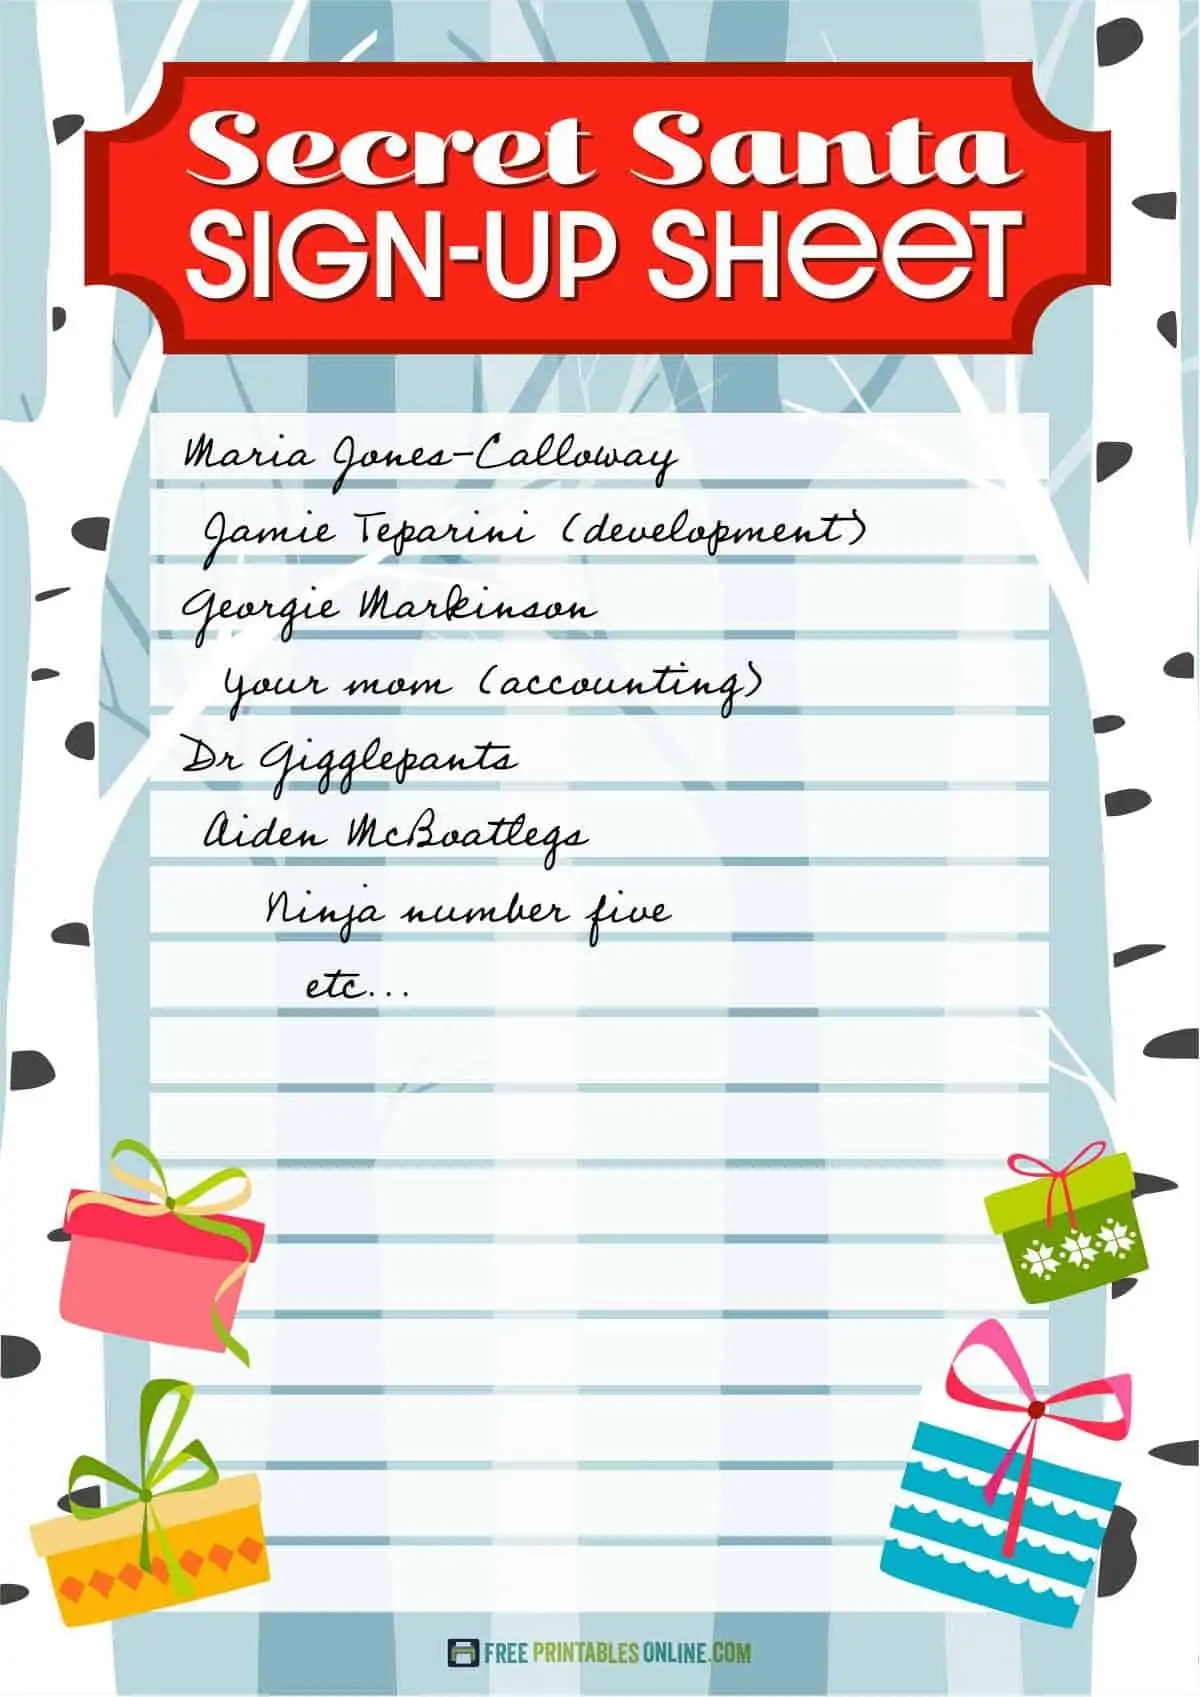 Secret Santa
SIGN-UP SHeeT
Maria Jones-Calloway
Jamie Teparini (development)
Georgie Markinson
Your mom (accounting)
Dr Gigglepants
Aiden McBoatlegs
Ninja number five
etc...
FREE PRINTABLES ONLINE.COM